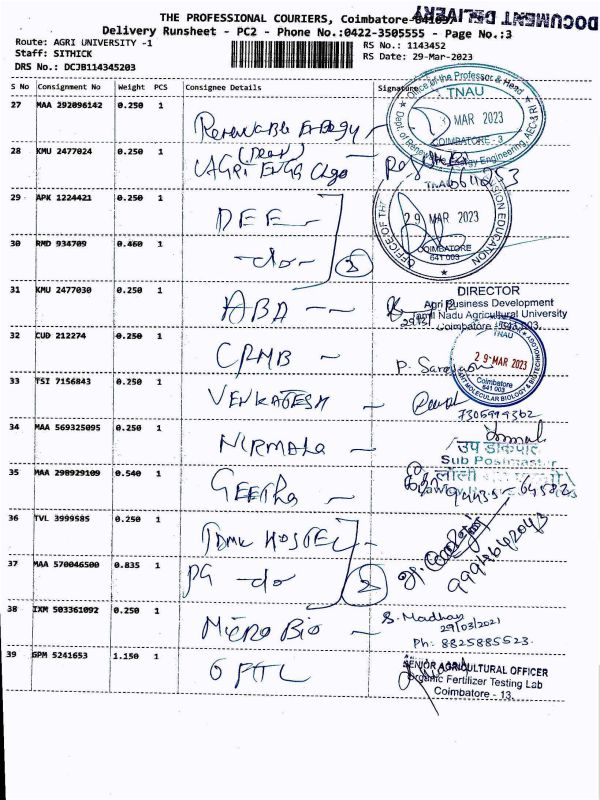 THE PROFESSIONAL COURIERS, Coimbatore-641097
DOCUMENT DELIVERY
Delivery Runsheet - PC2 - Phone No.:0422-3505555 - Page No.:3
Route: AGRI UNIVERSITY -1
RS No.: 1143452
Staff: SITHICK
RS Date: 29-Mar-2023
DRS No.: DCJB114345203
S No Consignment No Weight PCS Consignee Details Signature
27 MAA 292096142 0.250 1
Office of the Professor & Head
TNAU
MAR 2023
COIMBATORE - 3
Dept. of Renewable Energy Engineering, AEC & RI
Renewable Energy
28 KMU 2477024 0.250 1
(Dean)
AGRI ENGG Clge
6611253
29 APK 1224421 0.250 1
DEE
29 MAR 2023
COIMBATORE
641 003
30 RMD 934709 0.460 1
-do- 2
31 KMU 2477030 0.250 1
ABD
DIRECTOR
Agri Business Development
Tamil Nadu Agricultural University
Coimbatore - 641 003.
32 CUD 212274 0.250 1
CPMB
TNAU
29 MAR 2023
Coimbatore
641 003
PLANT MOLECULAR BIOLOGY & BIOTECHNOLOGY
33 TSI 7156843 0.250 1
VENKATESH
7305999362
34 MAA 569325095 0.250 1
NIRMALA
उप डाकपाल
Sub Postmaster
35 MAA 298929109 0.540 1
GEETHA
36 TVL 3999585 0.250 1
HOSTEL
37 MAA 570046500 0.835 1
PG -do- 2
9994642043
38 IXM 503361092 0.250 1
Micro Bio
S. Madhav
29/03/2021
Ph: 8825885523
39 GPM 5241653 1.150 1
OFTL
SENIOR AGRICULTURAL OFFICER
Organic Fertilizer Testing Lab
Coimbatore - 13.